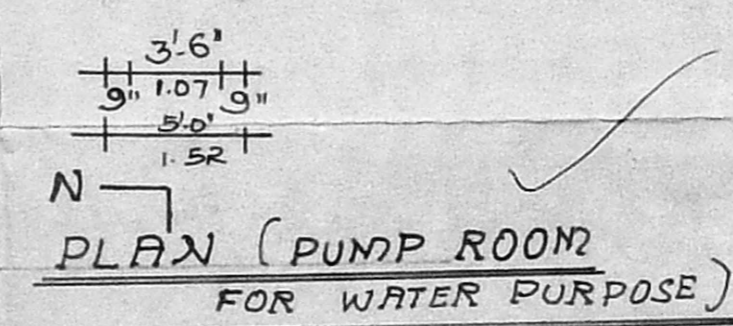 3'-6"
9" 1.07 9"
5'-0"
1.52
N
PLAN (PUMP ROOM
FOR WATER PURPOSE)